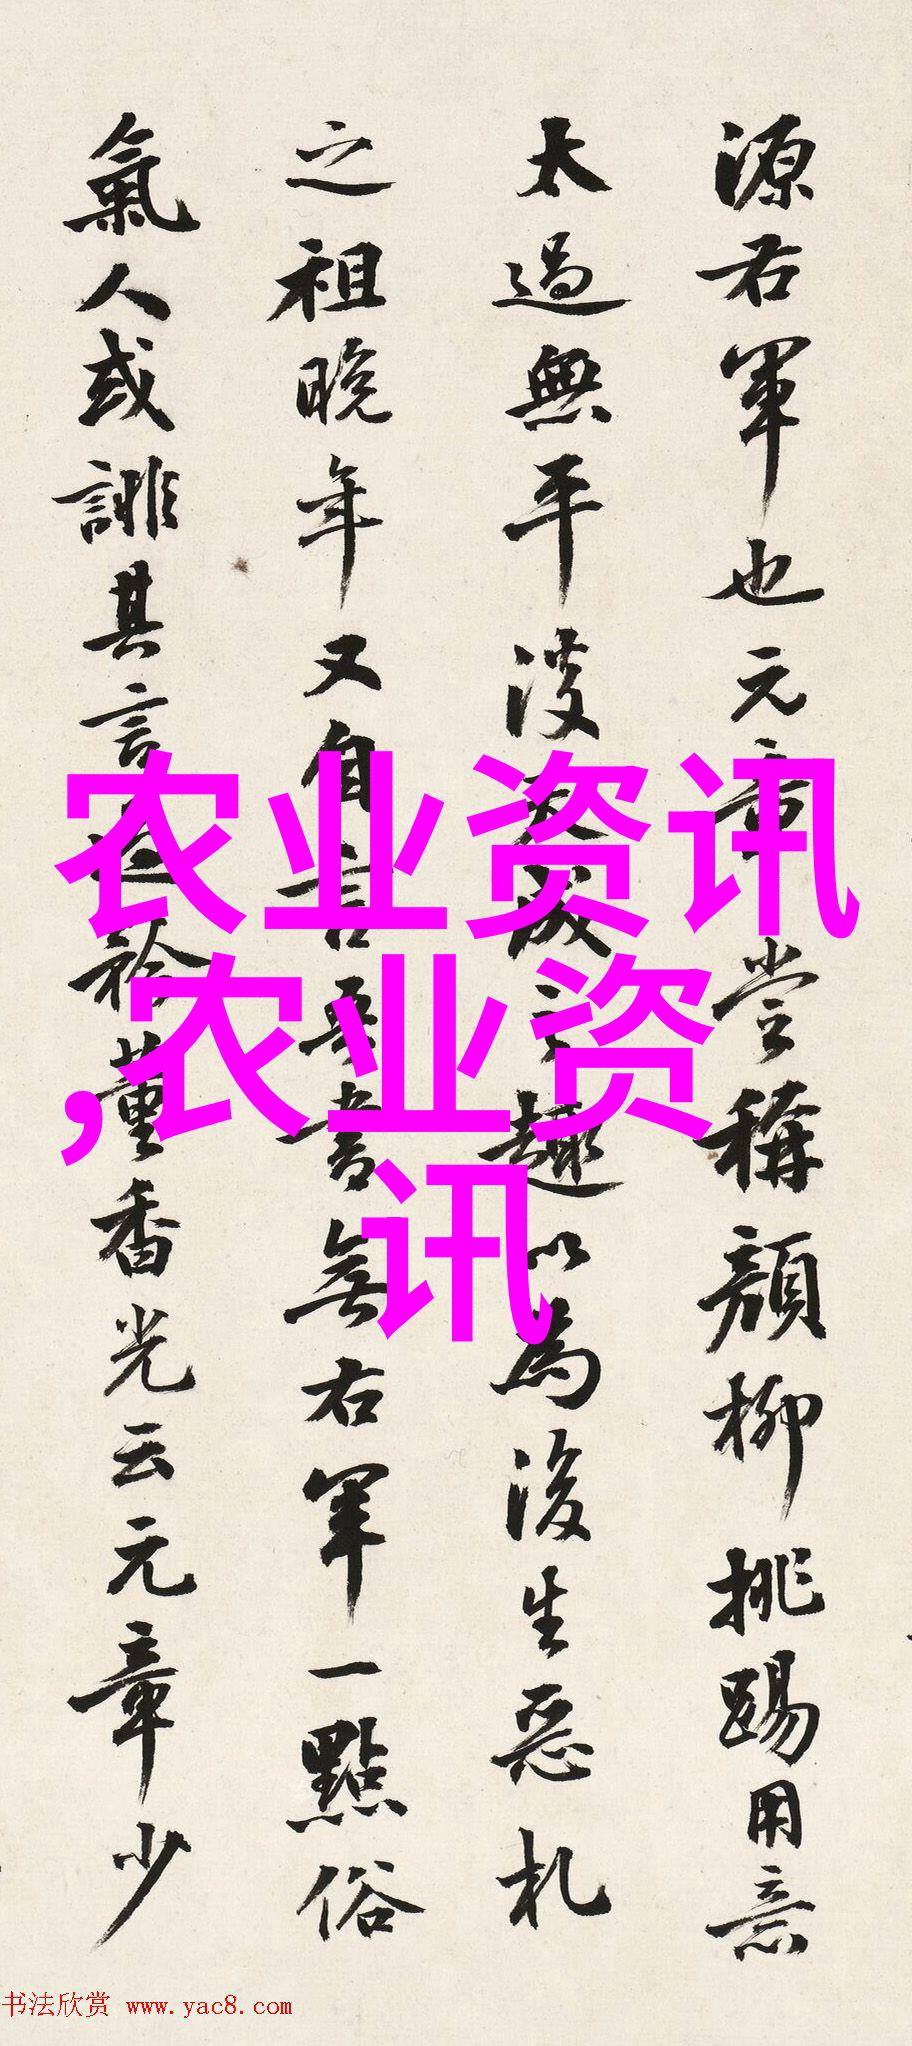 源右軍也元章嘗稱顏柳挑踢用意
太過無平淡天成之趣以為後生惡札
之祖晚年又自言吾書無右軍一點俗
氣人或誹其言之矜董香光云元章少
农业资讯
,农业资
讯
书法欣赏 www.yac8.com